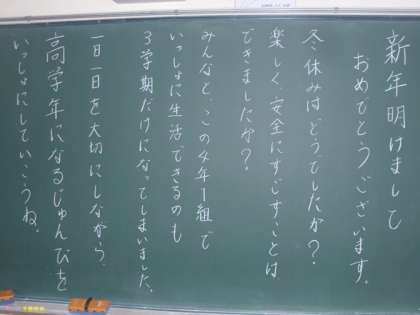 新年明けまして
おめでとうございます。
冬休みはどうでしたか？
楽しく、安全にすごすことは
できましたか？
みんなと、この4年1組で
いっしょに生活できるのも
3学期だけになってしまいました。
一日一日を大切にしながら、
高学年になるじゅんびを
いっしょにしていこうね。